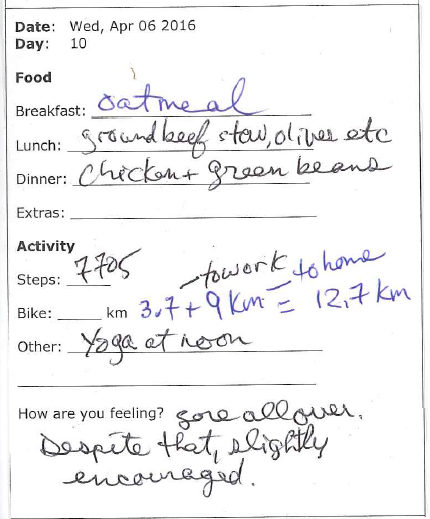 Date: Wed, Apr 06 2016
Day: 10
Food
Breakfast: oatmeal
Lunch: ground beef stew, olives etc
Dinner: Chicken + green beans
Extras:
Activity
Steps: 7705
- to work - to home
Bike: ____ km 3.7 + 9 km = 12.7 km
Other: Yoga at noon
How are you feeling? sore all over.
Despite that, slightly
encouraged.